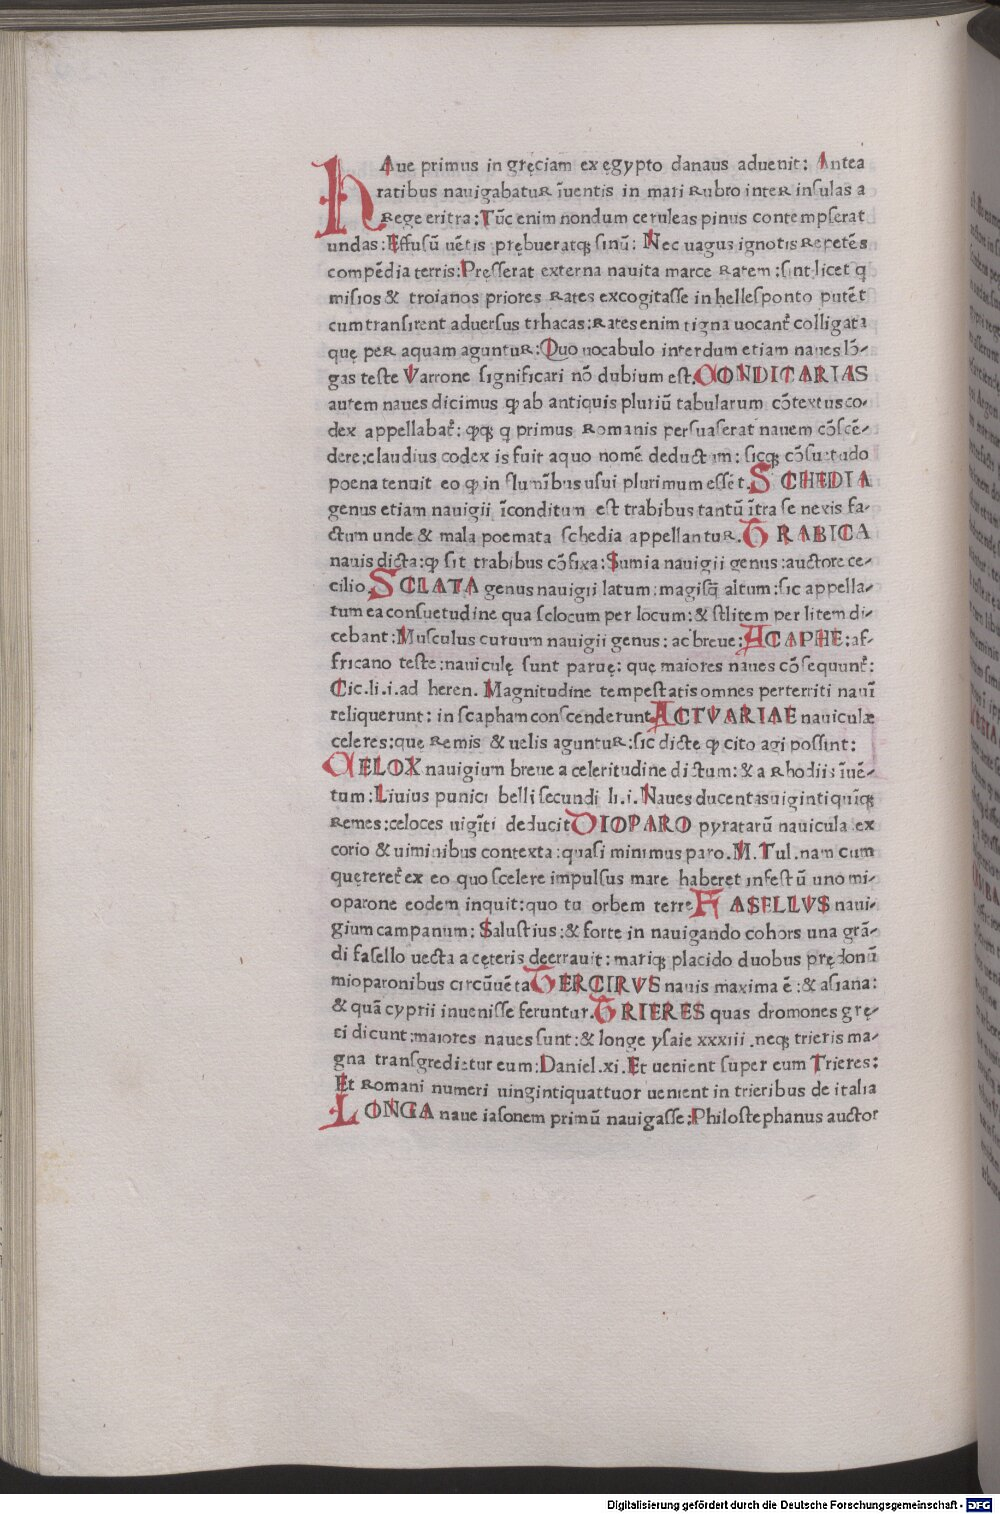 NAue primus in gręciam ex ęgypto danaus aduenit: Antea
ratibus nauigabatuR īuentis in mari Rubro inteR insulas a
Rege eritra: Tūc enim nondum ceruleas pinus contempserat
undas: Effusū uētis prębueratqꝫ sinū: Nec uagus ignotis Repetēs
compēdia terris: Presserat externa nauita merce Ratem: sint licet q
misios & troianos priores Rates excogitasse in hellesponto putēt
cum transirent aduersus trhacas: Rates enim tigna uocant᷑ colligata
quę peR aquam aguntuR: Quo uocabulo interdum etiam naues lō-
gas teste Varrone significari nō dubium est. CONDICARIAS
autem naues dicimus ꝙ ab antiquis pluriū tabularum cōtextus co-
dex appellabat᷑: ꝙqꝫ q primus Romanis persuaserat nauem cōscē-
dere: claudius codex is fuit a quo nomē deductum: sicqꝫ cōsuetudo
poena tenuit eo ꝙ in flumībus usui plurimum essēt. SCHEDIA
genus etiam nauigii īconditum est trabibus tantū ītra se nexis fa-
ctum unde & mala poemata schedia appellantuR. TRABICA
nauis dicta: ꝙ sit trabibus cōfixa: Sumia nauigii genus: auctore ce-
cilio. SCLATA genus nauigii latum: magisq̄ altum: sic appella-
tum ea consuetudine qua selocum per locum: & stlitem per litem di-
cebant: Musculus curuum nauigii genus: ac breue: SCAPHE: af-
fricano teste: nauiculę sunt paruę: quę maiores naues cōsequunt᷑:
Cic. li. i. ad heren. Magnitudine tempestatis omnes perterriti nauī
reliquerunt: in scapham conscenderunt ACTVARIAE nauiculæ
celeres: quę Remis & uelis aguntuR: sic dicte ꝙ cito agi possint:
CELOX nauigium breue a celeritudine dictum: & a Rhodiis īuē-
tum: Liuius punici belli secundi li. i. Naues ducentas uiginti quīqꝫ
Remes: celoces uigīti deducit DIOPARO pyratarū nauicula ex
corio & uiminibus contexta: quasi minimus paro. M. Tul. nam cum
quęreret᷑ ex eo quo scelere impulsus mare haberet infestū uno mi-
oparone eodem inquit: quo tu orbem terre FASELLVS naui-
gium campanum: Salustius: & forte in nauigando cohors una grā-
di fasello uecta a cęteris deerrauit: mariqꝫ placido duobus prędonū
mioparonibus circūuēta CERCIRVS nauis maxima ē: & asiana:
& quā cyprii inuenisse feruntur. TRIERES quas dromones grę-
ci dicunt: maiores naues sunt: & longe ysaie xxxiii. neqꝫ trieris ma-
gna transgredietur eum: Daniel. xi. Et uenient super eum Trieres:
Et Romani numeri uingintiquattuor uenient in trieribus de italia
LONGA naue iasonem primū nauigasse: Philostephanus auctor
Digitalisierung gefördert durch die Deutsche Forschungsgemeinschaft - DFG